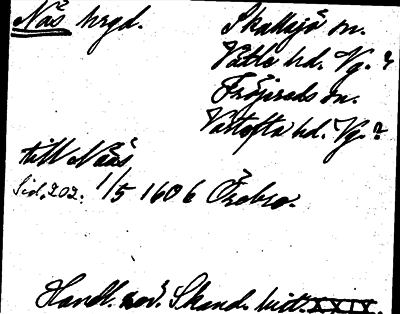 Näs hrgd. Skallsjö sn.
Vättle hd. Vg. ?
Fröjereds sn.
Vartofta hd. Vg. ?
till Nääs
Sid. 202. 1/5 1606 Örebro.
Handl. rör. Skand. hist. XXIX.